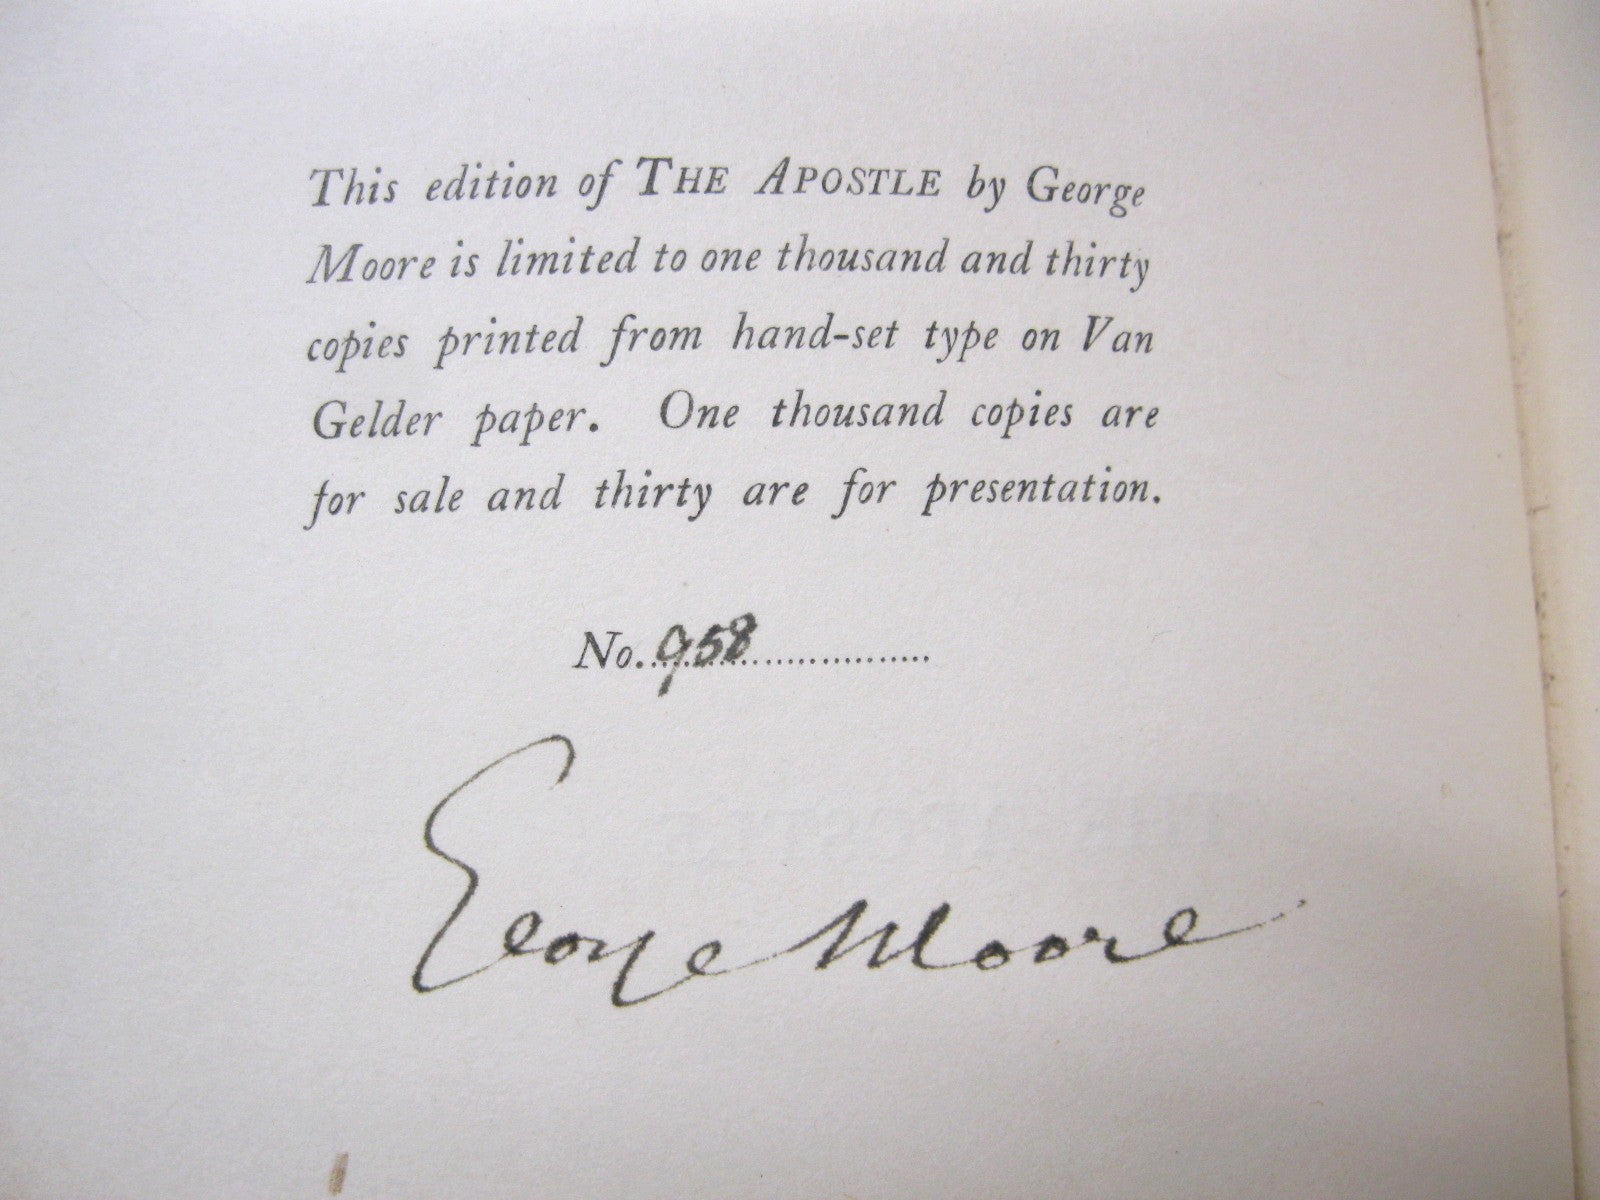 This edition of THE APOSTLE by George
Moore is limited to one thousand and thirty
copies printed from hand-set type on Van
Gelder paper. One thousand copies are
for sale and thirty are for presentation.
No. 958
George Moore